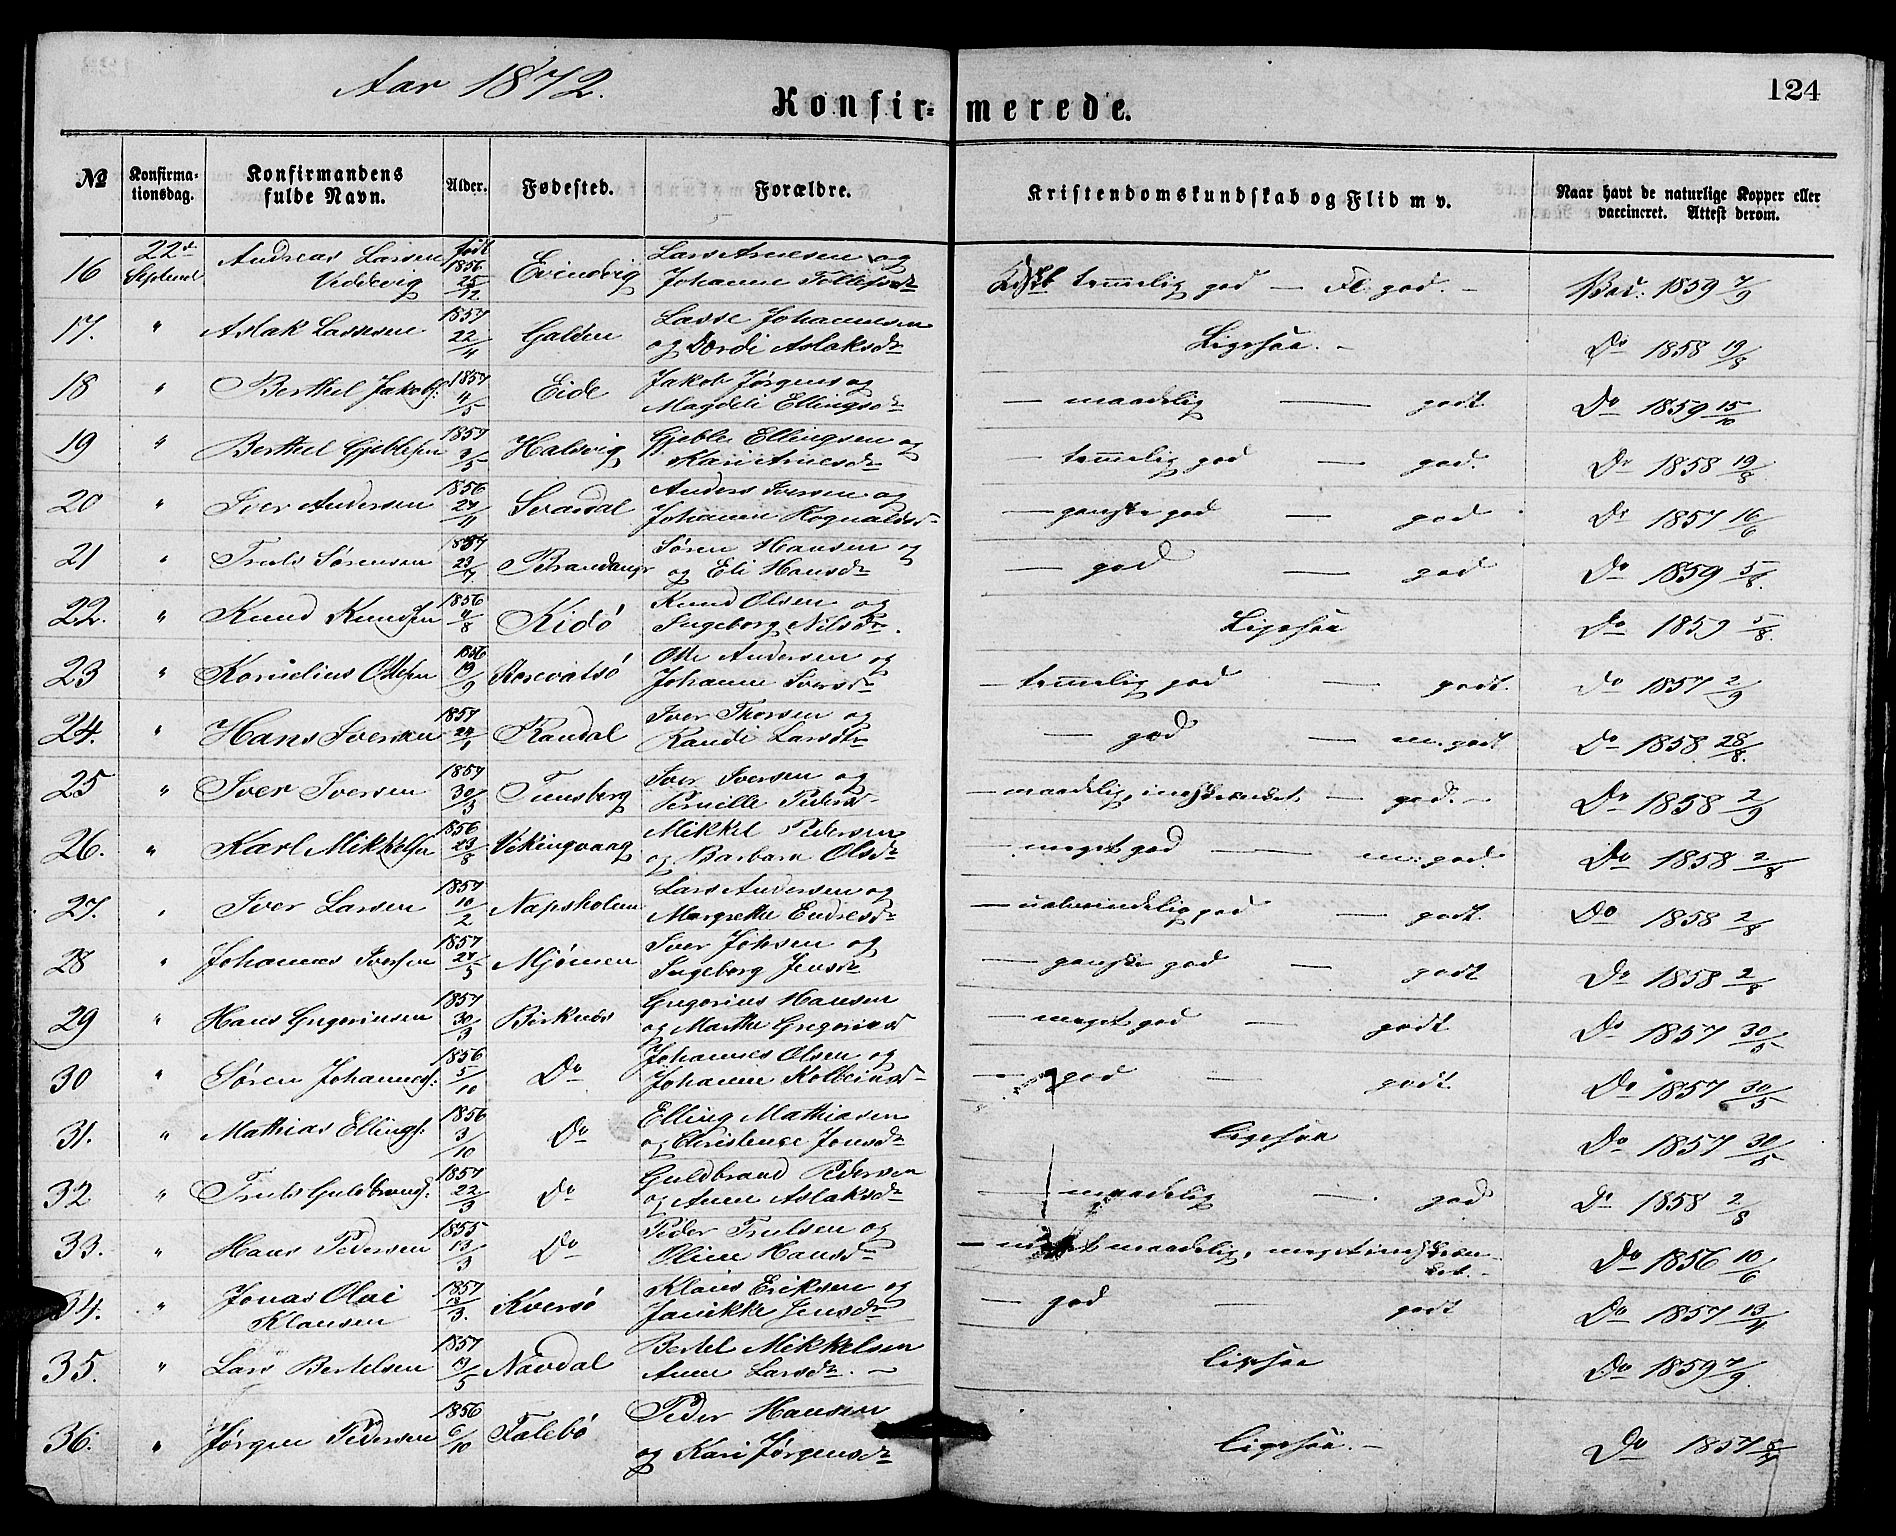 Aar 1872.
Konfirmerede.
124
№ Konfirmationsdag. Konfirmandens fulde Navn. Alder. Fødested. Forældre. Kristendomskundskab og Flid m v. Naar havt de naturlige Kopper eller vaccineret. Attest derom.
16 22d Septembr Andreas Larsen Veddevig født 1856 25/12 Evindvig Lars Arnesen og Johanne Tollefsdr temmelig god — Fl. god. — 1859 7/9
17. " Aslak Lassesen 1857 22/4 Galden Lasse Johannesen og Dordi Aslaksdr Ligesaa. — Do 1858 19/8
18 " Berthel Jakobs. 1857 4/5 Eide Jakob Jørgens og Magdeli Ellingsdr — maadelig — godt Do 1859 15/10
19 " Berthel Gjeblesen 1857 3/5 Halsvig Gjeble Ellingsen og Kari Arnesdr — temmelig god — god. Do 1858 19/8
20 " Iver Andersen 1856 24/11 Svardal Anders Iversen og Johanne Rognaldsd — ganske god — god Do 1857 16/6
21 " Truls Sørensen 1857 23/7 Brandanger Søren Hansen og og Eli Hansdr — god — god Do 1859 5/8
22. " Knud Knudsen 1856 4/8 Kidø Knud Olsen og Ingeborg Nilsdr. Ligesaa Do 1859 5/8
23 " Kornelius Ottesen 1856 19/9 Otte Andersen og Johanne Iversdr — temmelig god — godt. Do 1857 2/9
24. " Hans Iversen 1857 24/1 Randal Iver Thorsen og Randi Larsdtr — god — m. godt Do 1858 28/8
25 " Iver Iversen 1857 30/3 Tunsberg Iver Iversen og Pernille Pedersd — maadelig, — god. — Do 1858 2/9
26. " Karl Mikkelsen 1856 23/8 Vikingvaag Mikkel Pedersen og Barbara Olsdr — meget god — m. god. Do 1858 2/8
27. " Iver Larsen 1857 10/2 Napsholm Lars Andersen og Margrethe Endresdr — ualmindelig god — godt. Do 1858 2/8
28 " Johannes Iversen 1857 24/5 Mjømen Iver Johsen og Ingeborg Jensdr — ganske god — godt Do 1858 2/8
29 " Hans Gregoriusen 1857 30/3 Birknes Gregorius Hansen og Marthe Gregoriusd — meget god — godt Do 1857 30/5
30 " Søren Johannes. 1856 5/10 Do Johannes Olsen og Johanne Kolbeinsd — god — godt. Do 1857 30/5
31. " Mathias Ellings. 1856 3/10 Do Elling Mathiasen og Christense Jonsdr Ligesaa Do 1857 30/5
32 " Truls Guldbrands. 1857 22/3 Do Guldbrand Pedersen og Anne Aslaksdr — maadelig — god Do 1858 2/8
33. " Hans Pedersen 1855 13/3 Do Peder Trulsen og Oline Hansdr — maadelig, meget Do 1856 10/6
34. " Jonas Olai Klausen 1857 13/3. Kversø Klaus Eriksen og Janikke Jensdr — god — godt Do 1857 13/4
35. " Lars Bertelsen 1857 19/5 Navdal Bertel Mikkelsen Anne Larsdr. — Ligesaa Do 1859 7/9.
36. " Jørgen Pedersen 1856 6/10 Falebø Peder Hansen og Kari Jørgensdr Ligesaa. — Do 1857